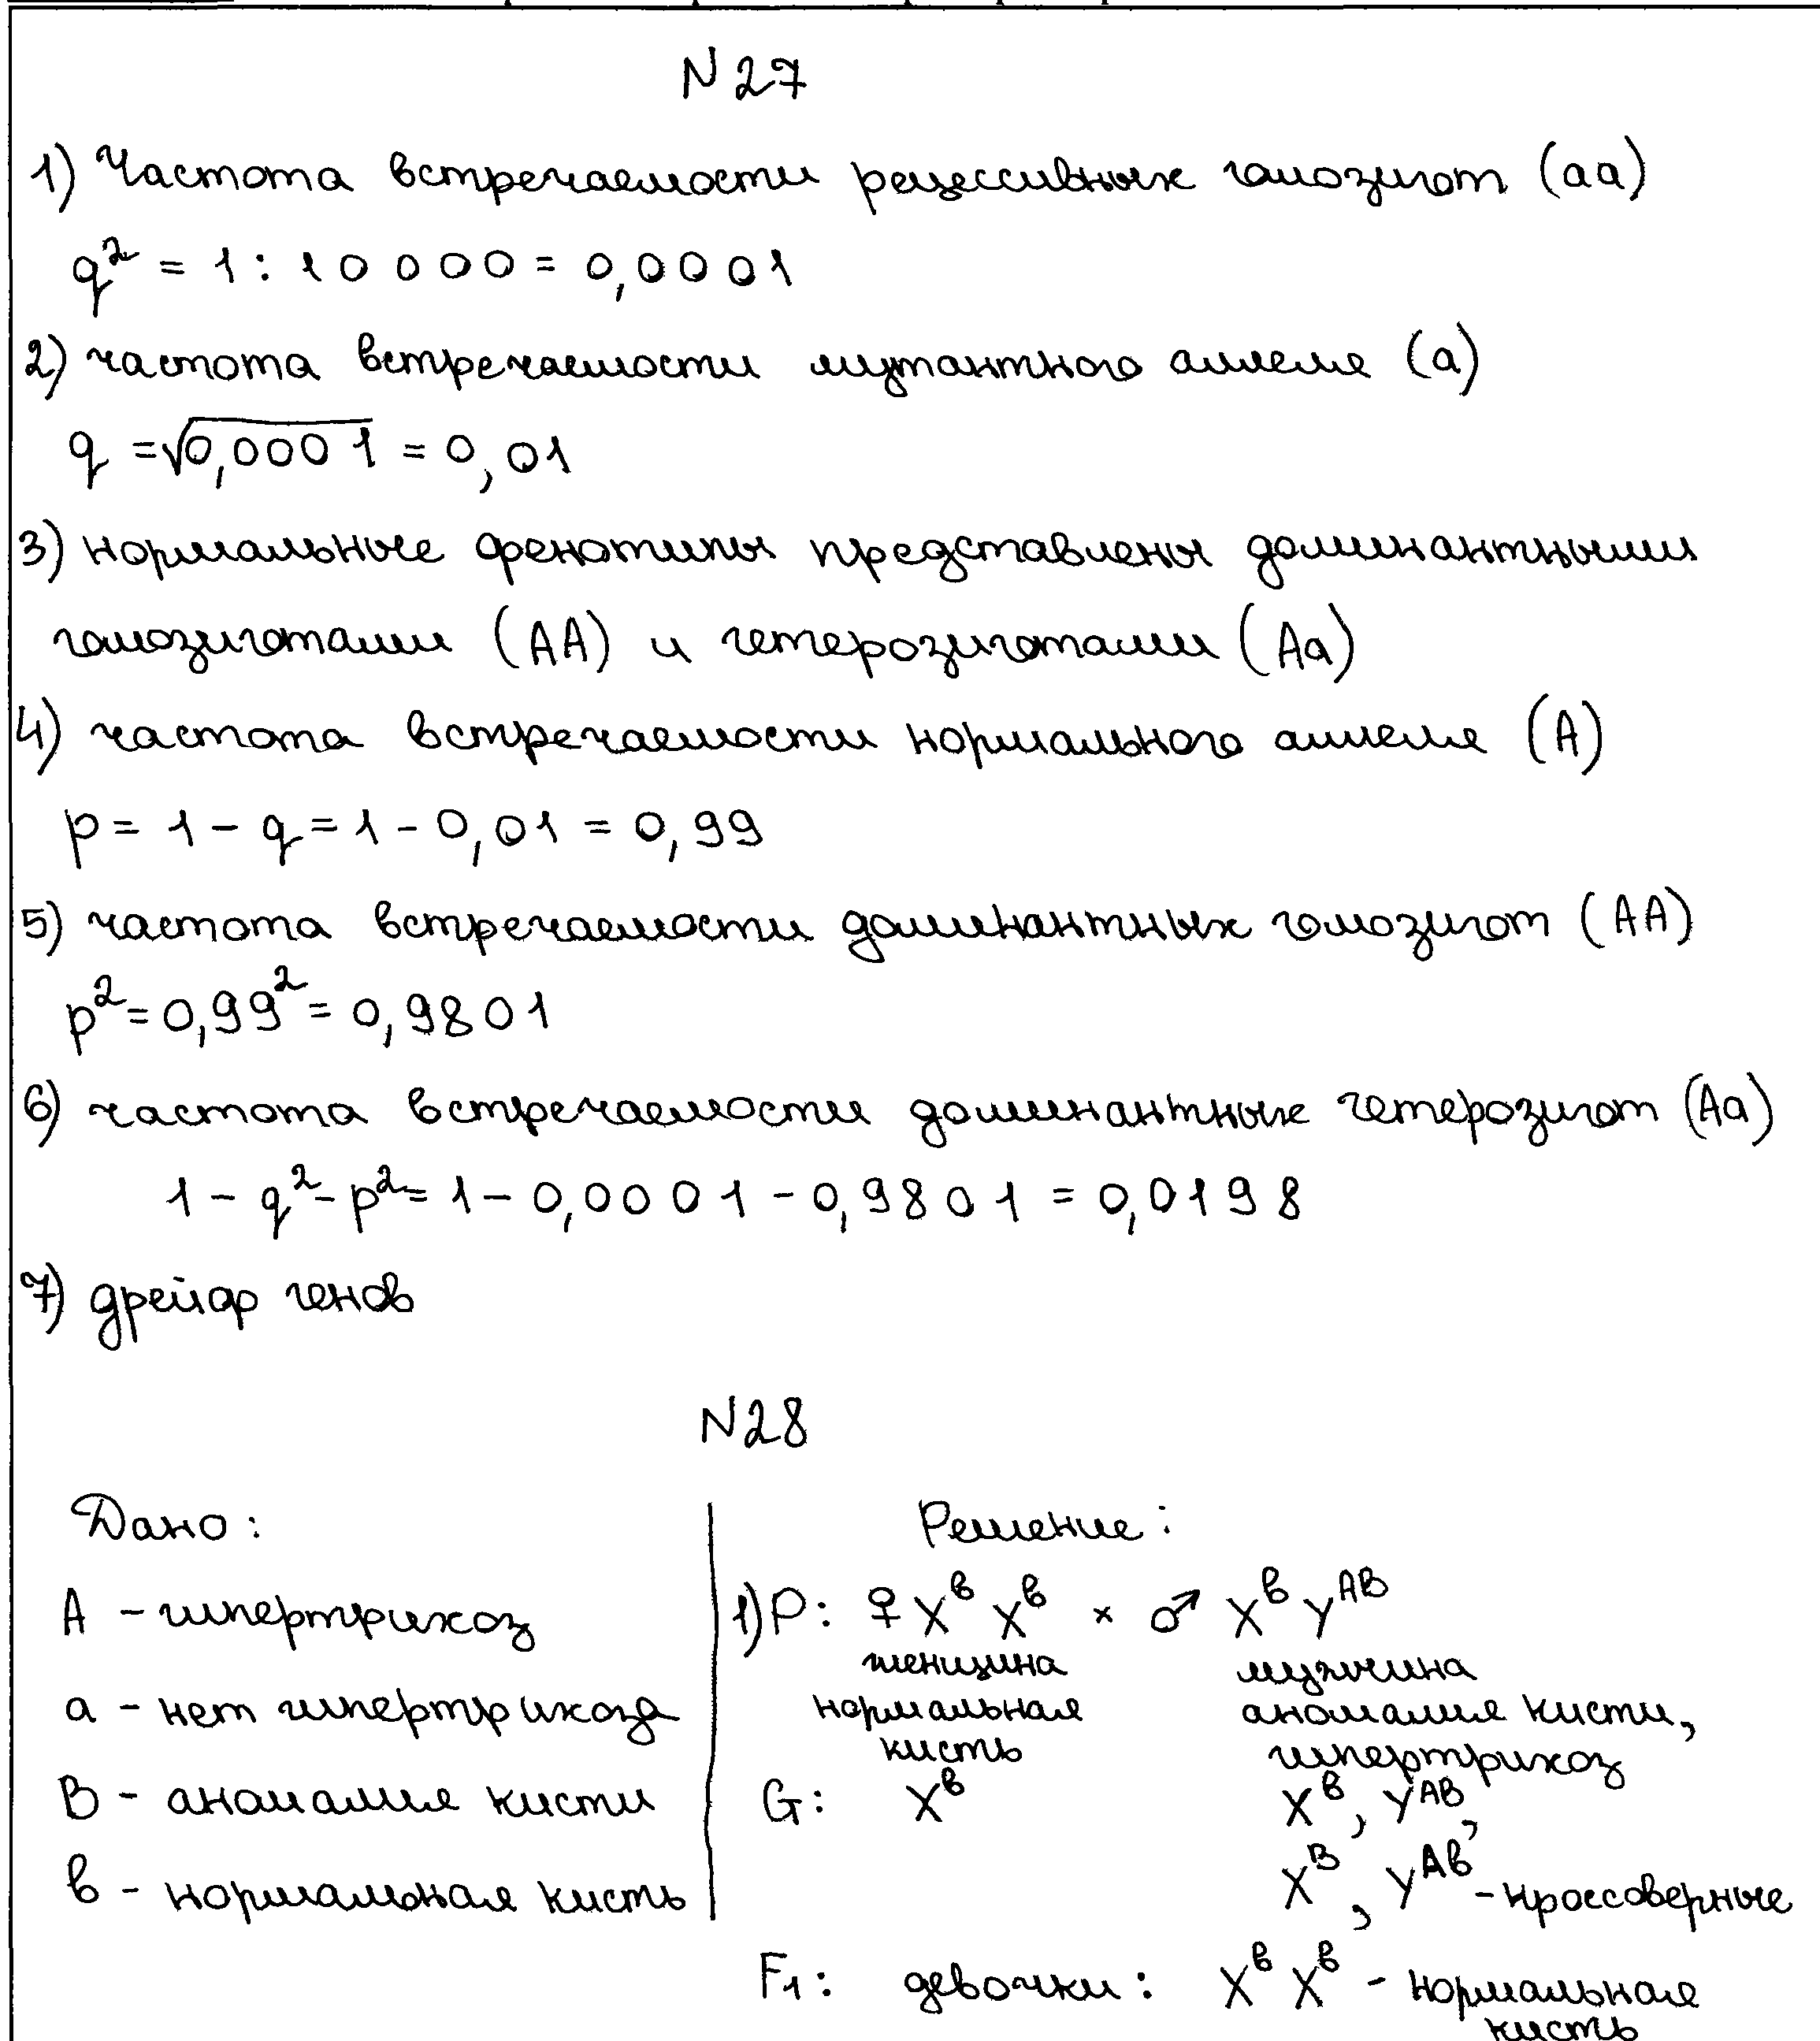 N 27
1) Частота встречаемости рецессивных гомозигот (aa)
q² = 1 : 10 000 = 0,0001
2) частота встречаемости мутантного аллеля (a)
q = √0,0001 = 0,01
3) нормальные фенотипы представлены доминантными
гомозиготами (AA) и гетерозиготами (Aa)
4) частота встречаемости нормального аллеля (A)
p = 1 - q = 1 - 0,01 = 0,99
5) частота встречаемости доминантных гомозигот (AA)
p² = 0,99² = 0,9801
6) частота встречаемости доминантных гетерозигот (Aa)
1 - q² - p² = 1 - 0,0001 - 0,9801 = 0,0198
7) дрейф генов
N28
Дано:
A - гипертрихоз
a - нет гипертрихоза
B - аномалия кисти
в - нормальная кисть
Решение:
1) P: ♀ Xᵇ Xᵇ × ♂ Xᵇ Yᴬᴮ
женщина мужчина
нормальная аномалия кисти,
кисть гипертрихоз
G: Xᵇ Xᵇ, Yᴬᴮ,
Xᴮ, Yᴬᵇ - кроссоверные
F₁: девочки: Xᵇ Xᵇ - нормальная
кисть